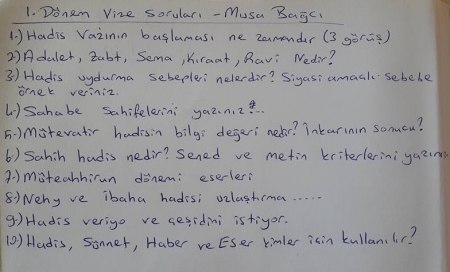 1. Dönem Vize Soruları - Musa Bağcı
1-) Hadis Vazının başlaması ne zamandır (3 görüş)
2-) Adalet, Zabt, Sema, Kıraat, Ravi Nedir?
3-) Hadis uydurma sebepleri nelerdir? Siyasi amaçlı sebebe
örnek veriniz.
4-) Sahabe Sahifelerini yazınız?..
5-) Mütevatir hadisin bilgi değeri nedir? İnkarının sonucu?
6-) Sahih hadis nedir? Sened ve metin kriterlerini yazınız
7-) Müteahhirun dönemi eserleri
8-) Nehy ve ibaha hadisi uzlaştırma .....
9-) Hadis veriyo ve çeşidini istiyor.
10-) Hadis, Sünnet, Haber ve Eser kimler için kullanılır?